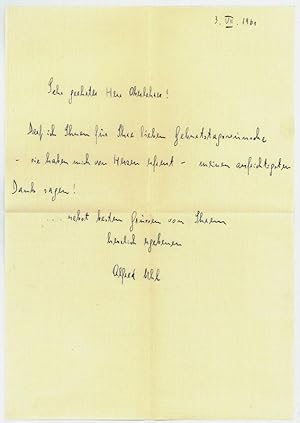 3. VII. 1961
Sehr geehrter Herr Oberlehrer!
Darf ich Ihnen für Ihre lieben Geburtstagswünsche
- sie haben mich von Herzen erfreut - meinen aufrichtigsten
Dank sagen!
.... nebst besten Grüssen vom Ihrem
herzlich ergebenen
Alfred Uhl